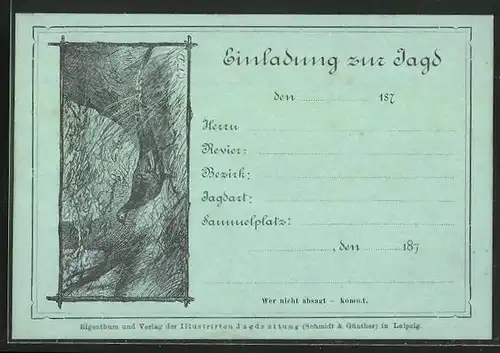 Einladung zur Jagd
den 187
Herrn
Revier:
Bezirk:
Jagdart:
Sammelplatz:
, den 187
Wer nicht absagt – kommt.
Eigenthum und Verlag der Illustrirten Jagdzeitung (Schmidt & Günther) in Leipzig.